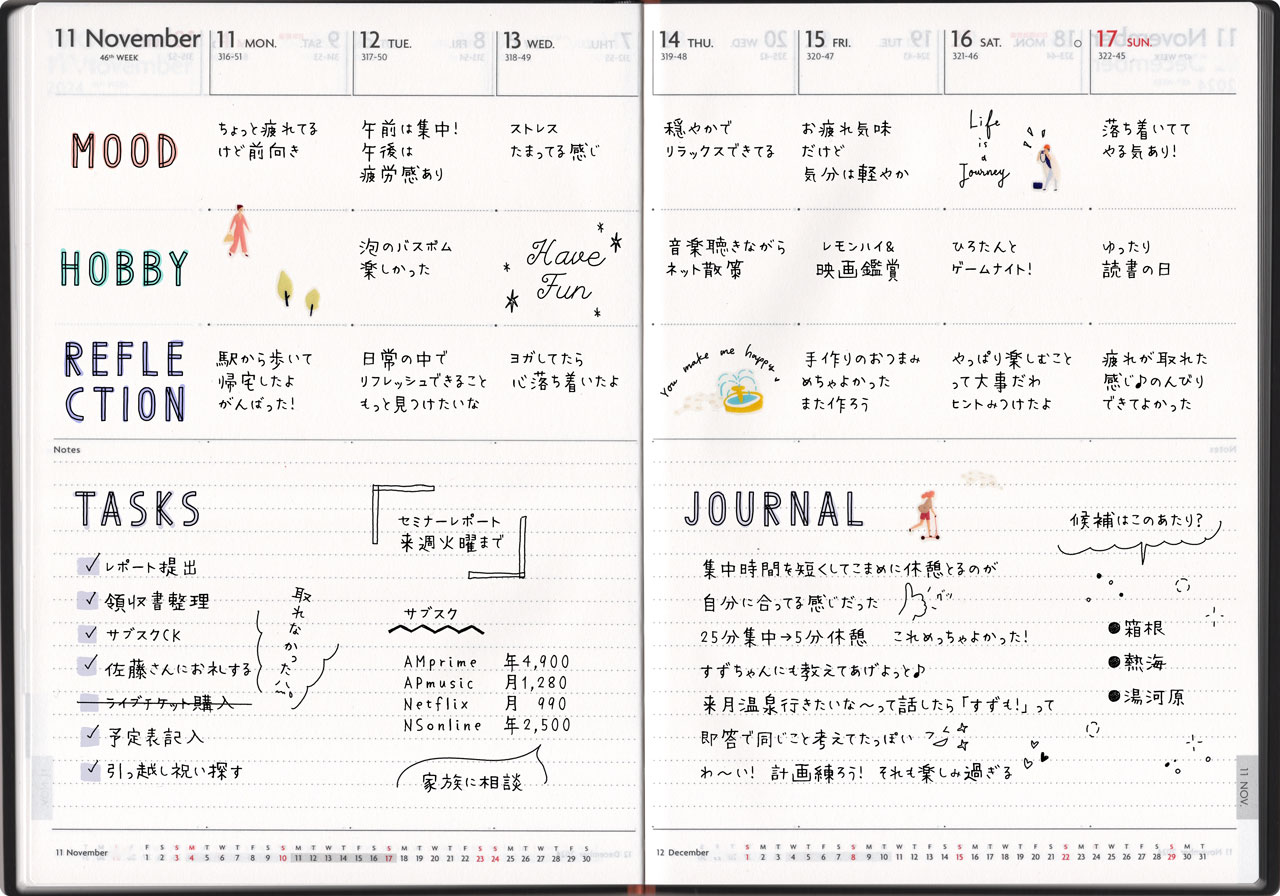 11 November
46th WEEK
11 MON.
316-51
12 TUE.
317-50
13 WED.
318-49
14 THU.
319-48
15 FRI.
320-47
16 SAT.
321-46
17 SUN.
322-45
MOOD
ちょっと疲れてる
けど前向き
午前は集中!
午後は
疲労感あり
ストレス
たまってる感じ
穏やかで
リラックスできてる
お疲れ気味
だけど
気分は軽やか
Life
is
a
Journey
落ち着いてて
やる気あり!
HOBBY
泡のバスボム
楽しかった
Have
Fun
音楽聴きながら
ネット散策
レモンハイ&
映画鑑賞
ひろたんと
ゲームナイト!
ゆったり
読書の日
REFLE
CTION
駅から歩いて
帰宅したよ
がんばった!
日常の中で
リフレッシュできること
もっと見つけたいな
ヨガしてたら
心落ち着いたよ
You make me happy
手作りのおつまみ
めちゃよかった
また作ろう
やっぱり楽しむこと
って大事だわ
ヒントみつけたよ
疲れが取れた
感じ♪のんびり
できてよかった
Notes
TASKS
レポート提出
領収書整理
サブスクCK
佐藤さんにお礼する
ライブチケット購入
予定表記入
引っ越し祝い探す
取れなかった
セミナーレポート
来週火曜まで
サブスク
AMprime 年4,900
APmusic 月1,280
Netflix 月 990
NSonline 年2,500
家族に相談
JOURNAL
集中時間を短くしてこまめに休憩とるのが
自分に合ってる感じだった
グッ
25分集中→5分休憩 これめっちゃよかった!
すずちゃんにも教えてあげよっと♪
来月温泉行きたいな〜って話したら「すずも!」って
即答で同じこと考えてたっぽい
わ〜い! 計画練ろう! それも楽しみ過ぎる
候補はこのあたり?
●箱根
●熱海
●湯河原
11 NOV.
11 November
F S S M T W T F S S M T W T F S S M T W T F S S M T W T F S
1 2 3 4 5 6 7 8 9 10 11 12 13 14 15 16 17 18 19 20 21 22 23 24 25 26 27 28 29 30
12 December
S M T W T F S S M T W T F S S M T W T F S S M T W T F S S M T
1 2 3 4 5 6 7 8 9 10 11 12 13 14 15 16 17 18 19 20 21 22 23 24 25 26 27 28 29 30 31